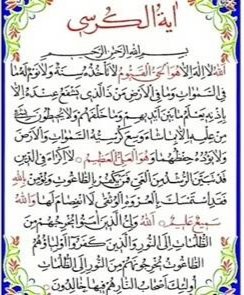 آية الكرسي
بسم الله الرحمن الرحيم
الله لا إله إلا هو الحي القيوم لا تأخذه سنة ولا نوم له ما
في السموات وما في الأرض من ذا الذي يشفع عنده إلا
بإذنه يعلم ما بين أيديهم وما خلفهم ولا يحيطون بشيء
من علمه إلا بما شاء وسع كرسيه السموات والأرض
ولا يؤده حفظهما وهو العلي العظيم لا إكراه في الدين
قد تبين الرشد من الغي فمن يكفر بالطاغوت ويؤمن بالله
فقد استمسك بالعروة الوثقى لا انفصام لها والله
سميع عليم الله ولي الذين آمنوا يخرجهم من
الظلمات إلى النور والذين كفروا أولياؤهم
الطاغوت يخرجونهم من النور إلى الظلمات
أولئك أصحاب النار هم فيها خالدون